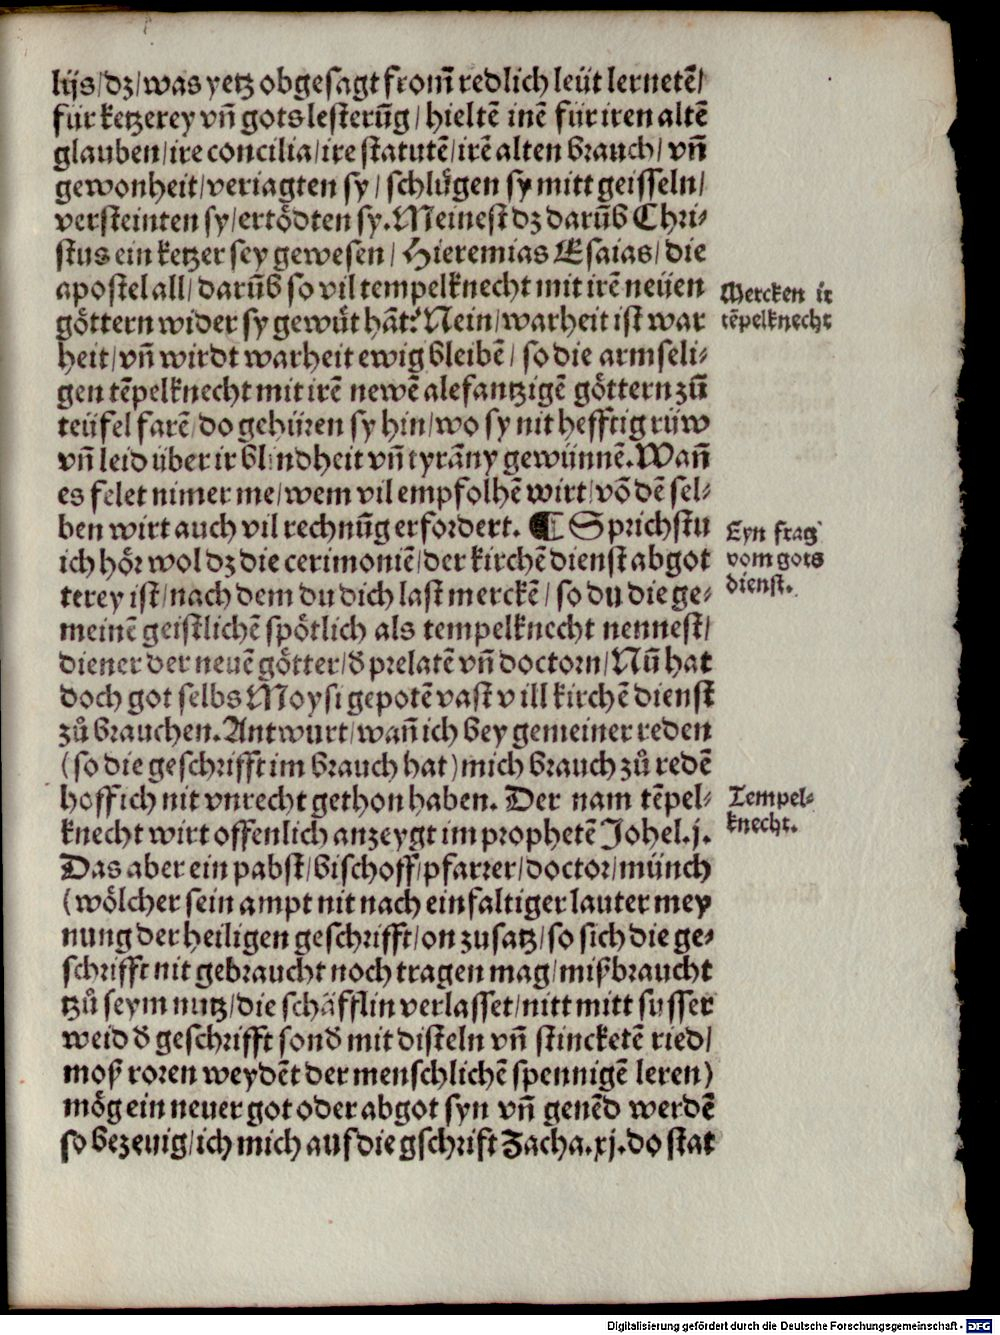 lijs/dz/was yetz obgesagt from̄ redlich leüt lernetē/
für ketzerey vñ gotslesterūg/hieltē inē für iren altē
glauben/ire concilia/ire statutē/irē alten brauch/vñ
gewonheit/veriagten sy/schlůgen sy mitt geisseln/
versteinten sy/ertödten sy. Meinest dz darūb Chri-
stus ein ketzer sey gewesen/Hieremias Esaias/die
apostel all/darūb so vil tempelknecht mit irē neüen
göttern wider sy gewüt hāt? Nein/warheit ist war
heit/vñ wirdt warheit ewig bleibē/so die armseli-
gen tēpelknecht mit irē newē alefantzigē göttern zů
teüfel farē/do gehüren sy hin/wo sy nit hefftig rüw
vñ leid über ir blindheit vñ tyrāny gewünnē. Wañ
es felet nimer me/wem vil empfolhē wirt/vō dē sel-
ben wirt auch vil rechnūg erfordert. ¶ Sprichstu
ich hör wol dz die cerimoniē/der kirchē dienst abgot
terey ist/nach dem du dich last merckē/so du die ge-
meinē geistlichē spötlich als tempelknecht nennest/
diener der neuē götter/ď prelatē vñ doctorn/Nū hat
doch got selbs Moysi gepotē vast vill kirchē dienst
zů brauchen. Antwurt/wañ ich bey gemeiner reden
(so die geschrifft im brauch hat) mich brauch zů redē
hoff ich nit vnrecht gethon haben. Der nam tēpel-
knecht wirt offenlich anzeygt im prophetē Johel.j.
Das aber ein pabst/bischoff/pfarrer/doctor/münch
(wölcher sein ampt nit nach einfaltiger lauter mey
nung der heiligen geschrifft/on zusatz/so sich die ge-
schrifft nit gebraucht noch tragen mag/mißbraucht
tzů seym nutz/die schäfflin verlasset/nitt mitt susser
weid ď geschrifft sonď mit disteln vñ stincketē ried/
moß roren weydēt der menschlichē spennigē leren)
mög ein neuer got oder abgot syn vñ genēd werdē
so bezeuig/ich mich auf die gschrift Zacha.xj. do stat
Mercken ir
tēpelknecht
Eyn frag
vom gots
dienst.
Tempel-
knecht.
Digitalisierung gefördert durch die Deutsche Forschungsgemeinschaft - DFG